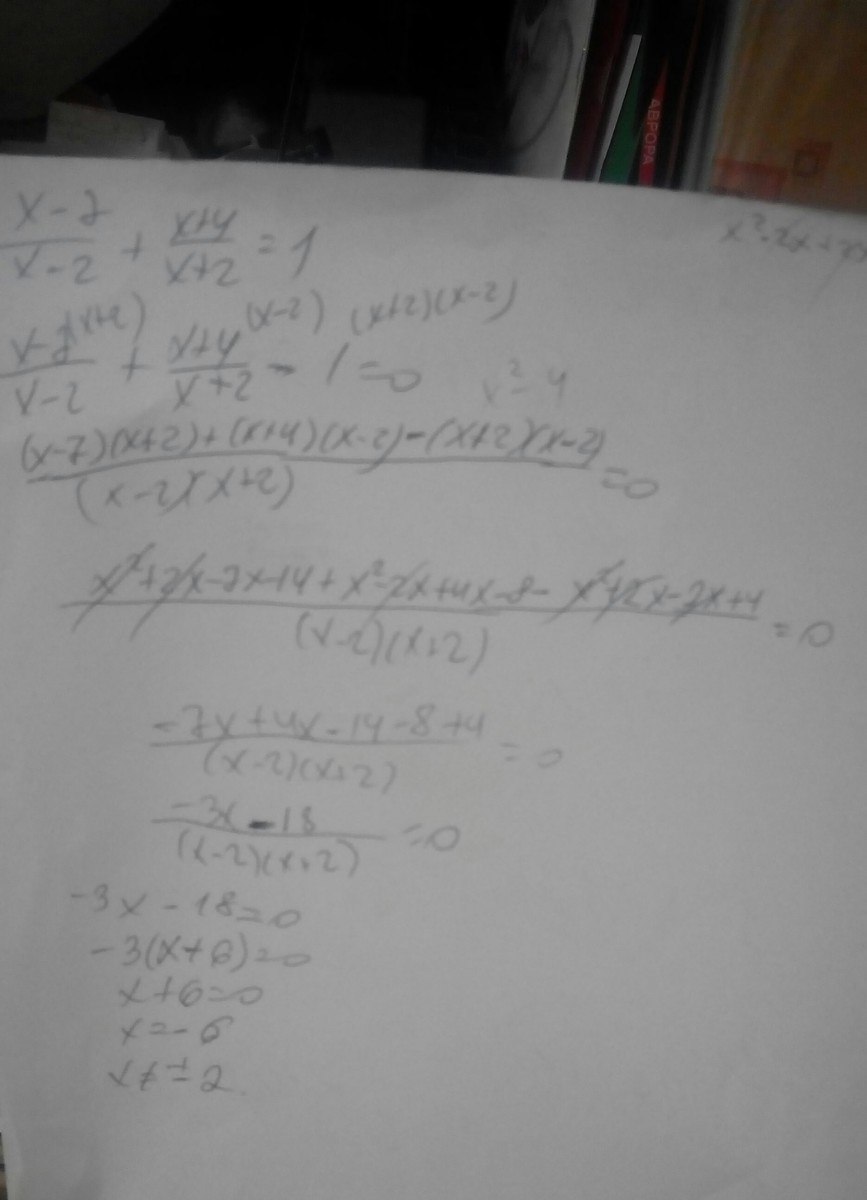 АВРОРА
x-7/x-2 + x+4/x+2 = 1
x-7(x+2)/x-2 + x+4(x-2)/x+2 - 1(x+2)(x-2) = 0
x²-4
(x-7)(x+2)+(x+4)(x-2)-(x+2)(x-2)/(x-2)(x+2) = 0
x²+2x-7x-14+x²-2x+4x-8-x²+2x-2x+4/(x-2)(x+2) = 0
-7x+4x-14-8+4/(x-2)(x+2) = 0
-3x-18/(x-2)(x+2) = 0
-3x-18=0
-3(x+6)=0
x+6=0
x=-6
x≠±2.